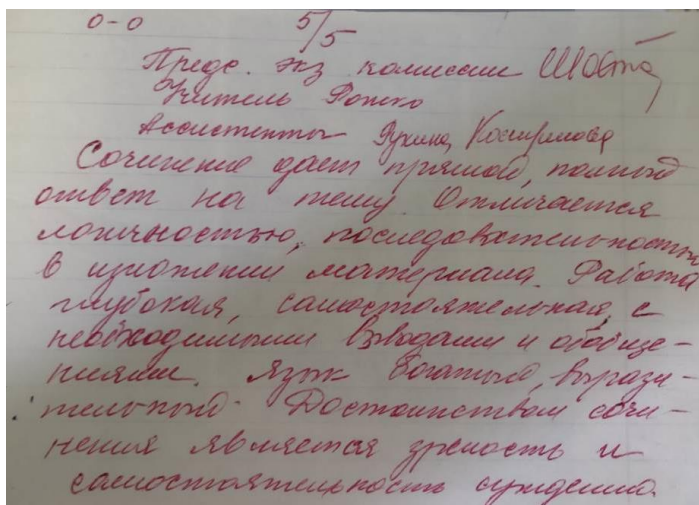 0-0 5/5
Предс. экз. комиссии
Учитель
Ассистенты
Сочинение дает прямой, полный
ответ на тему. Отличается
логичностью, последовательностью
в изложении материала. Работа
глубокая, самостоятельная, с
необходимыми выводами и обобще-
ниями. Язык богатый, вырази-
тельный. Достоинством сочи-
нения является зрелость и
самостоятельность суждений.